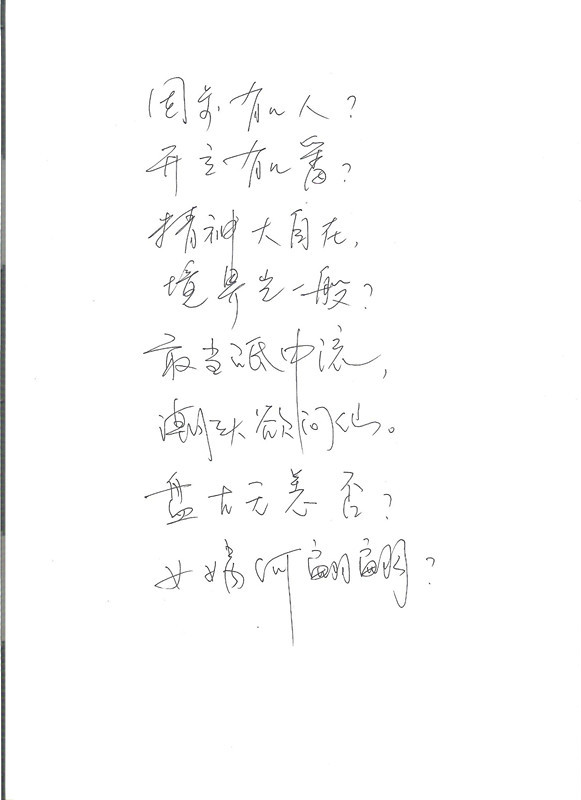 有几人?
开立有几番?
精神大自在,
境界岂一般?
敢当砥中流,
潮头欲问仙。
盘古无恙否?
女娲何翩翩?